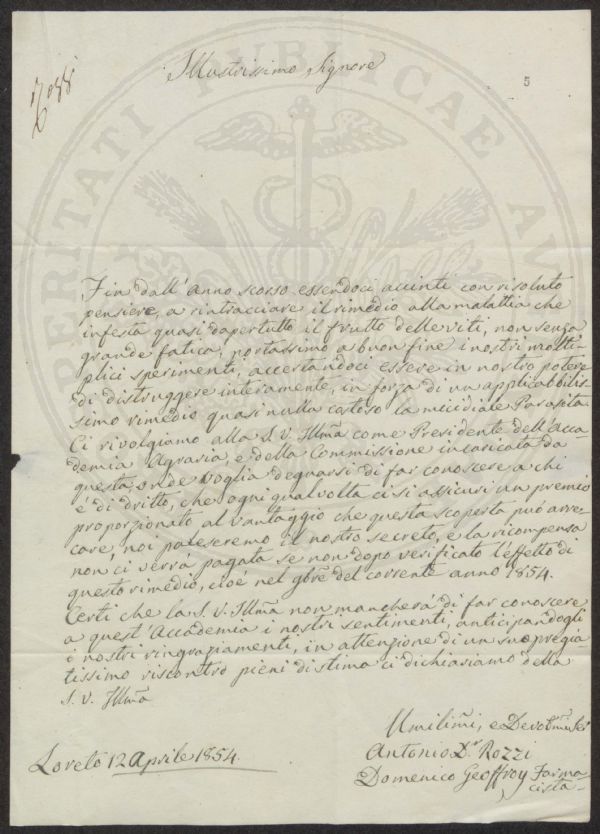 Illustrissimo Signore
5
Fin dall'anno scorso essendoci accinti con risoluto
pensiere, a rintracciare il rimedio alla malattia che
infesta quasi dapertutto il frutto delle viti, non senza
grande fatica, portassimo a buon fine i nostri molti-
plici sperimenti, accertandoci essere in nostro potere
di distruggere interamente, in forza di un applicabilis-
simo rimedio quasi nulla costoso la micidiale Parasita-
Ci rivolgiamo alla S. V. Illm̃a come Presidente dell'Acca-
demia Agraria, e della Commissione incaricata da
questa, onde voglia degnarsi di far conoscere a chi
è di dritto, che ogni qual volta ci si assicuri un premio
proporzionato al vantaggio che questa scoperta può arre-
care, noi paleseremo il nostro secreto, e la ricompensa
non ci verrà pagata se non dopo verificato l'effetto di
questo rimedio, cioè nel 9bre del corrente anno 1854.
Certi che la S. V. Illm̃a non mancherà di far conoscere
a quest'Accademia i nostri sentimenti, anticipandogli
i nostri ringraziamenti, in attenzione di un suo pregia-
tissimo riscontro pieni di stima ci dichiariamo della
S. V. Illm̃a
Umilim̃i, e Devotm̃i Ser
Antonio Dr Rozzi
Loreto 12 Aprile 1854.
Domenico Geoffroy Farma
cista-
PERITATI PUBLICAE